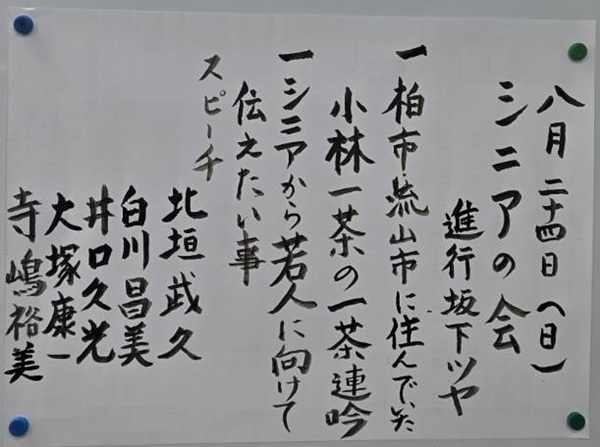 八月二十四日(日)
シニアの会
進行坂下ツヤ
一柏市・流山市に住んでいた
小林一茶の一茶連吟
一シニアから若人に向けて
伝えたい事
スピーチ
北垣武久
白川昌美
井口久光
大塚康一
寺嶋裕美